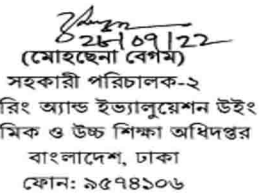 ২৮/০৯/২২
(মোহছেনা বেগম)
সহকারী পরিচালক-২
রিং অ্যান্ড ইভ্যালুয়েশন উইং
মিক ও উচ্চ শিক্ষা অধিদপ্তর
বাংলাদেশ, ঢাকা
ফোন: ৯৫৭৪১০৬